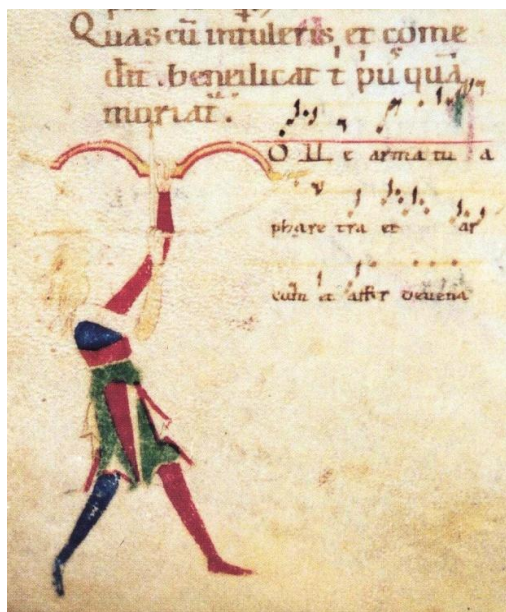 Quas cū intuleris et come
dit .benedicat t puˢquā
moriat.
O LL e arma tu a
phare tra et ar
cum et affer venena